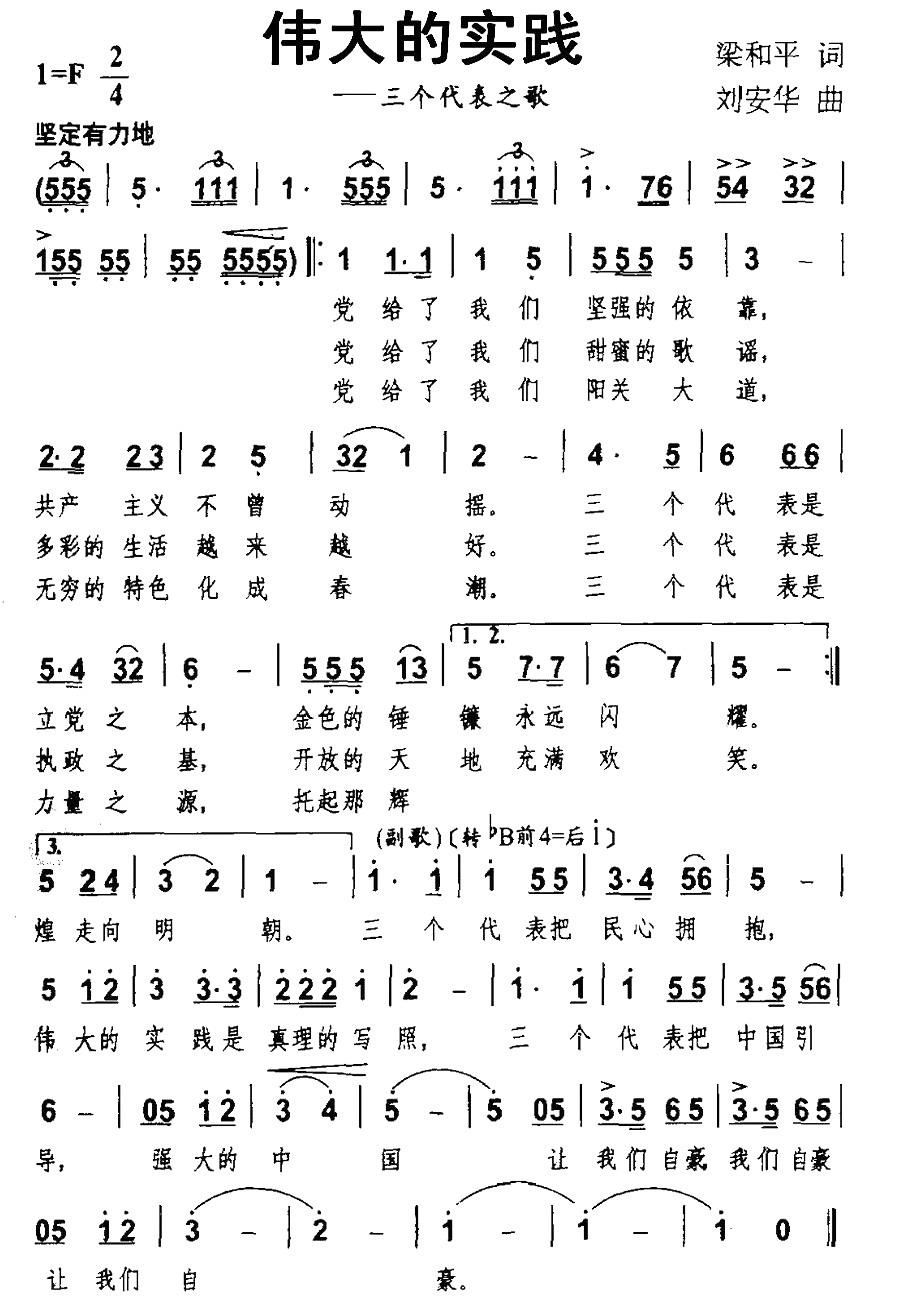 伟大的实践
1=F 2/4
——三个代表之歌
梁和平 词
刘安华 曲
坚定有力地
(555 | 5· 111 | 1· 555 | 5· 111 | 1· 76 | 54 32 |
155 55 | 55 5555) ‖: 1 1·1 | 1 5 | 555 5 | 3 – |
党给了我们 坚强的依靠,
党给了我们 甜蜜的歌谣,
党给了我们 阳关大道,
2·2 23 | 2 5 | 32 1 | 2 – | 4· 5 | 6 66 |
共产 主义不曾动摇。三个代表是
多彩的生活越来越好。三个代表是
无穷的特色化成春潮。三个代表是
1. 2.
5·4 32 | 6 – | 555 13 | 5 7·7 | 6 7 | 5 – :‖
立党之本, 金色的锤镰永远闪耀。
执政之基, 开放的天地充满欢笑。
力量之源, 托起那辉
3.
(副歌)〔转♭B前4=后i〕
5 24 | 3 2 | 1 – | 1· 1 | 1 55 | 3·4 56 | 5 – |
煌走向明朝。三个代表把民心拥抱,
5 12 | 3 3·3 | 222 1 | 2 – | 1· 1 | 1 55 | 3·5 56 |
伟大的实践是真理的写照, 三个代表把中国引
6 – | 05 12 | 3 4 | 5 – | 5 05 | 3·5 65 | 3·5 65 |
导, 强大的中国 让我们自豪我们自豪
05 12 | 3 – | 2 – | 1 – | 1 – | 1 0 ‖
让我们自豪。